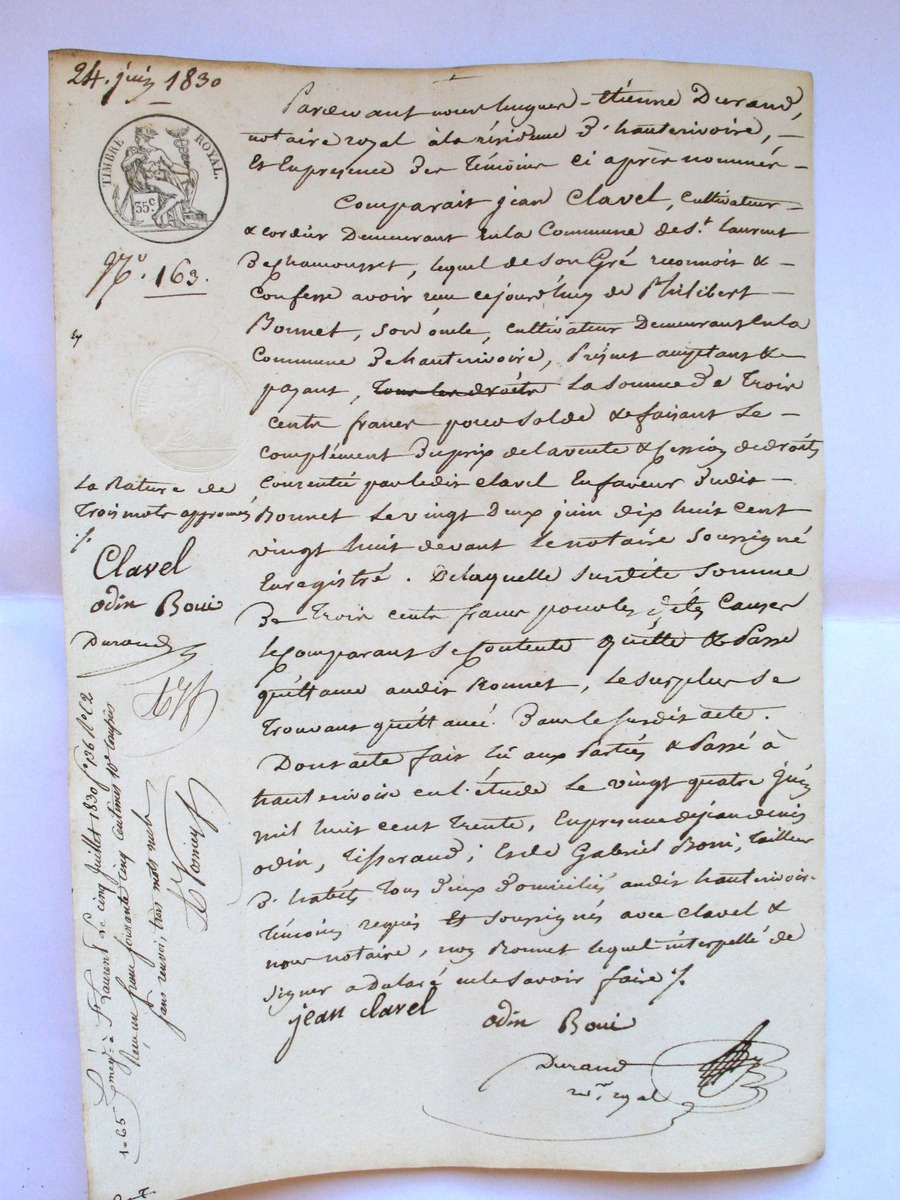 24. juin 1830
TIMBRE ROYAL.
35c
N.o 163.
Pardevant nous Hugues-Etienne Durand,
notaire royal à la résidence d'hauterivoire, –
Et En presence des Témoins ci après nommés –
Comparait jean Clavel, Cultivateur –
& cordier Demeurant En la Commune de St. Laurent
De Chamousset, lequel de son Gré reconnoit & –
Confesse avoir reçu cejourd'huy de Philibert –
Bonnet, son oncle, cultivateur Demeurant En la
Commune d'hauterivoire, Présent acceptant & –
payant, tous les droits la somme de Trois
cents francs pour solde & faisant Le –
complément Du prix de la vente & Cession de droits
Consentie par ledit Clavel En faveur Dudit –
Bonnet Le vingt Deux juin dix huit cent
vingt huit devant le notaire soussigné
Enregistré. De laquelle susdite somme
De Trois cents francs pour les dites Causes
le Comparant se Contente quitte & Passe
quittance audit Bonnet, Le surplus se
Trouvant quittancé Dans le susdit acte.
Dont acte fait lû aux Parties & Passé à
hauterivoire En l'étude Le vingt quatre juin
mil huit cent Trente, En presence de jean denis
odin, Tisserand; Et de Gabriel Boui, Tailleur
D'habits Tous Deux Domiciliés audit hauterivoire
Témoins requis Et soussignés avec Clavel &
nous notaire, non Bonnet lequel interpellé de
signer a déclaré ne le savoir faire ./.
jean clavel
odin Boui
Durand
nre. royal
La Rature de
Trois mots approuvés
./.
Clavel
odin Boui
Durand
Enregé. à St. Laurent Le cinq Juillet 1830 fo. 136 Ro. C2
Reçu un franc soixante cinq centimes 10e compris
sans renvoi, trois mots nuls
1=65